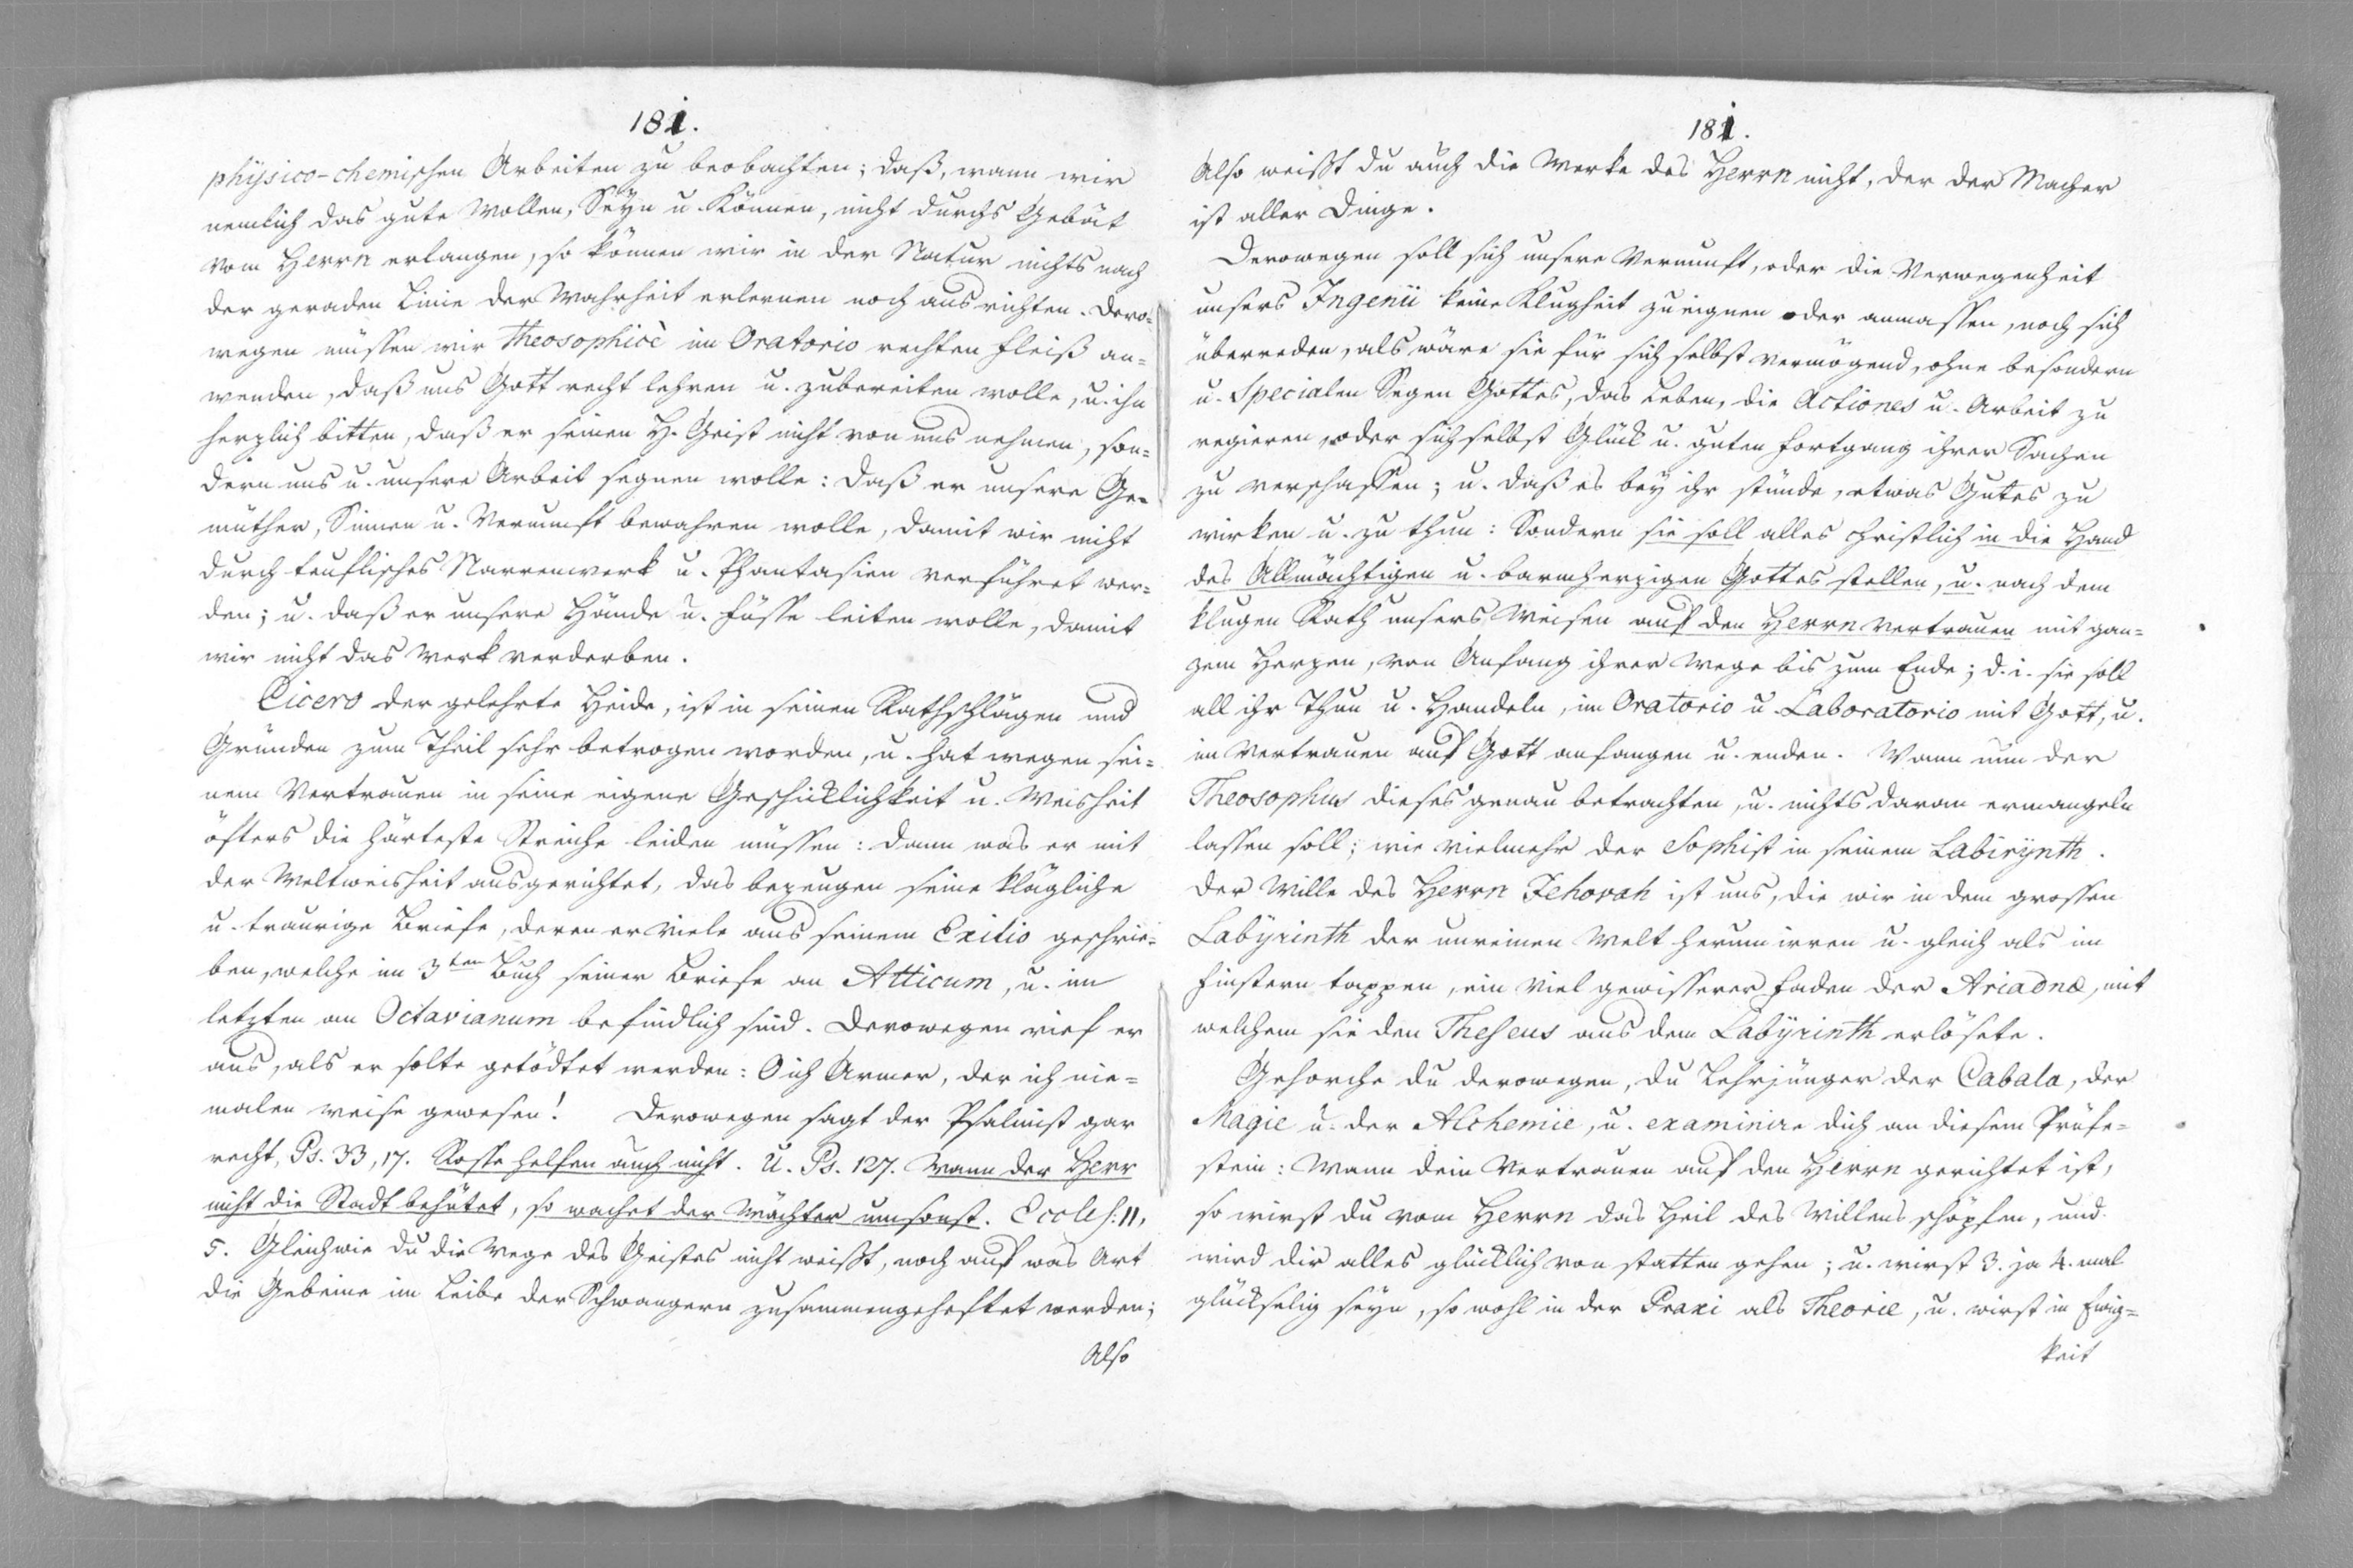 181.
physico-chemischen Arbeiten zu beobachten; daß, wann wir
nemlich das gute Wollen, Seyn u. Können, nicht durchs Gebät
vom Herrn erlangen, so können wir in der Natur nichts nach
der geraden Linie der Wahrheit erlernen noch ausrichten. Dero-
wegen müssen wir theosophicè im Oratorio rechten Fleiß an-
wenden, daß uns Gott recht lehren u. zubereiten wolle, u. ihn
herzlich bitten, daß er seinen H. Geist nicht von uns nehmen, son-
dern uns u. unsere Arbeit segnen wolle: daß er unsere Ge-
müther, Sinnen u. Vernunft bewahren wolle, damit wir nicht
durch teuflisches Narrenwerk u. Phantasien verführet wer-
den; u. daß er unsere Hände u. Füsse leiten wolle, damit
wir nicht das Werk verderben.
Cicero der gelehrte Heide, ist in seinen Rathschlägen und
Gründen zum Theil sehr betrogen worden, u. hat wegen sei-
nem Vertrauen in seine eigene Geschicklichkeit u. Weisheit
öfters die härteste Streiche leiden müssen: dann was er mit
der Weltweisheit ausgerichtet, das bezeugen seine klägliche
u. traurige Briefe, deren er viele aus seinem Exilio geschrie-
ben, welche im 3ten Buch seiner Briefe an Atticum, u. im
letzten an Octavianum befindlich sind. Derowegen rief er
aus, als er solte getödtet werden: O ich Armer, der ich nie-
malen weise gewesen! Derowegen sagt der Psalmist gar
recht, Ps. 33, 17. Rosse helfen auch nicht. U. Ps. 127. Wann der Herr
nicht die Stadt behütet, so wachet der Wächter umsonst. Eccles: 11,
5. Gleichwie du die Wege des Geistes nicht weißt, noch auf was Art
die Gebeine im Leibe der Schwangern zusammengeheftet werden;
Also
181.
Also weißt du auch die Werke des Herrn nicht, der der Macher
ist aller Dinge.
Derowegen soll sich unsere Vernunft, oder die Verwegenheit
unsers Ingenii keine Klugheit zueignen oder anmassen, noch sich
überreden, als wäre sie für sich selbst vermögend, ohne besondern
u. Specialen Segen Gottes, das Leben, die Actiones u. Arbeit zu
regieren, oder sich selbst Glück u. guten Fortgang ihrer Sachen
zu verschaffen; u. daß es bey ihr stünde, etwas Gutes zu
wirken u. zu thun: Sondern sie soll alles christlich in die Hand
des Allmächtigen u. barmherzigen Gottes stellen, u. nach dem
klugen Rath unsers Weisen auf den Herrn vertrauen mit gan-
zem Herzen, von Anfang ihrer Wege bis zum Ende; d. i. sie soll
all ihr Thun u. Handeln, im Oratorio u. Laboratorio mit Gott, u.
im Vertrauen auf Gott anfangen u. enden. Wann nun der
Theosophus dieses genau betrachten, u. nichts daran ermangeln
lassen soll; wie vielmehr der Sophist in seinem Labirynth.
Der Wille des Herrn Jehovah ist uns, die wir in dem grossen
Labyrinth der unreinen Welt herum irren u. gleich als im
Finstern tappen, ein viel gewisserer Faden der Ariadnæ, mit
welchem sie den Theseus aus dem Labyrinth erlösete.
Gehorche du derowegen, du Lehrjünger der Cabala, der
Magie u. der Alchemie, u. examinire dich an diesem Prüfe-
stein: Wann dein Vertrauen auf den Herrn gerichtet ist,
so wirst du vom Herrn das Heil des Willens schöpfen, und
wird dir alles glücklich von statten gehen; u. wirst 3. ja 4. mal
glückselig seyn, so wohl in der Praxi als Theorie, u. wirst in Ewig-
keit